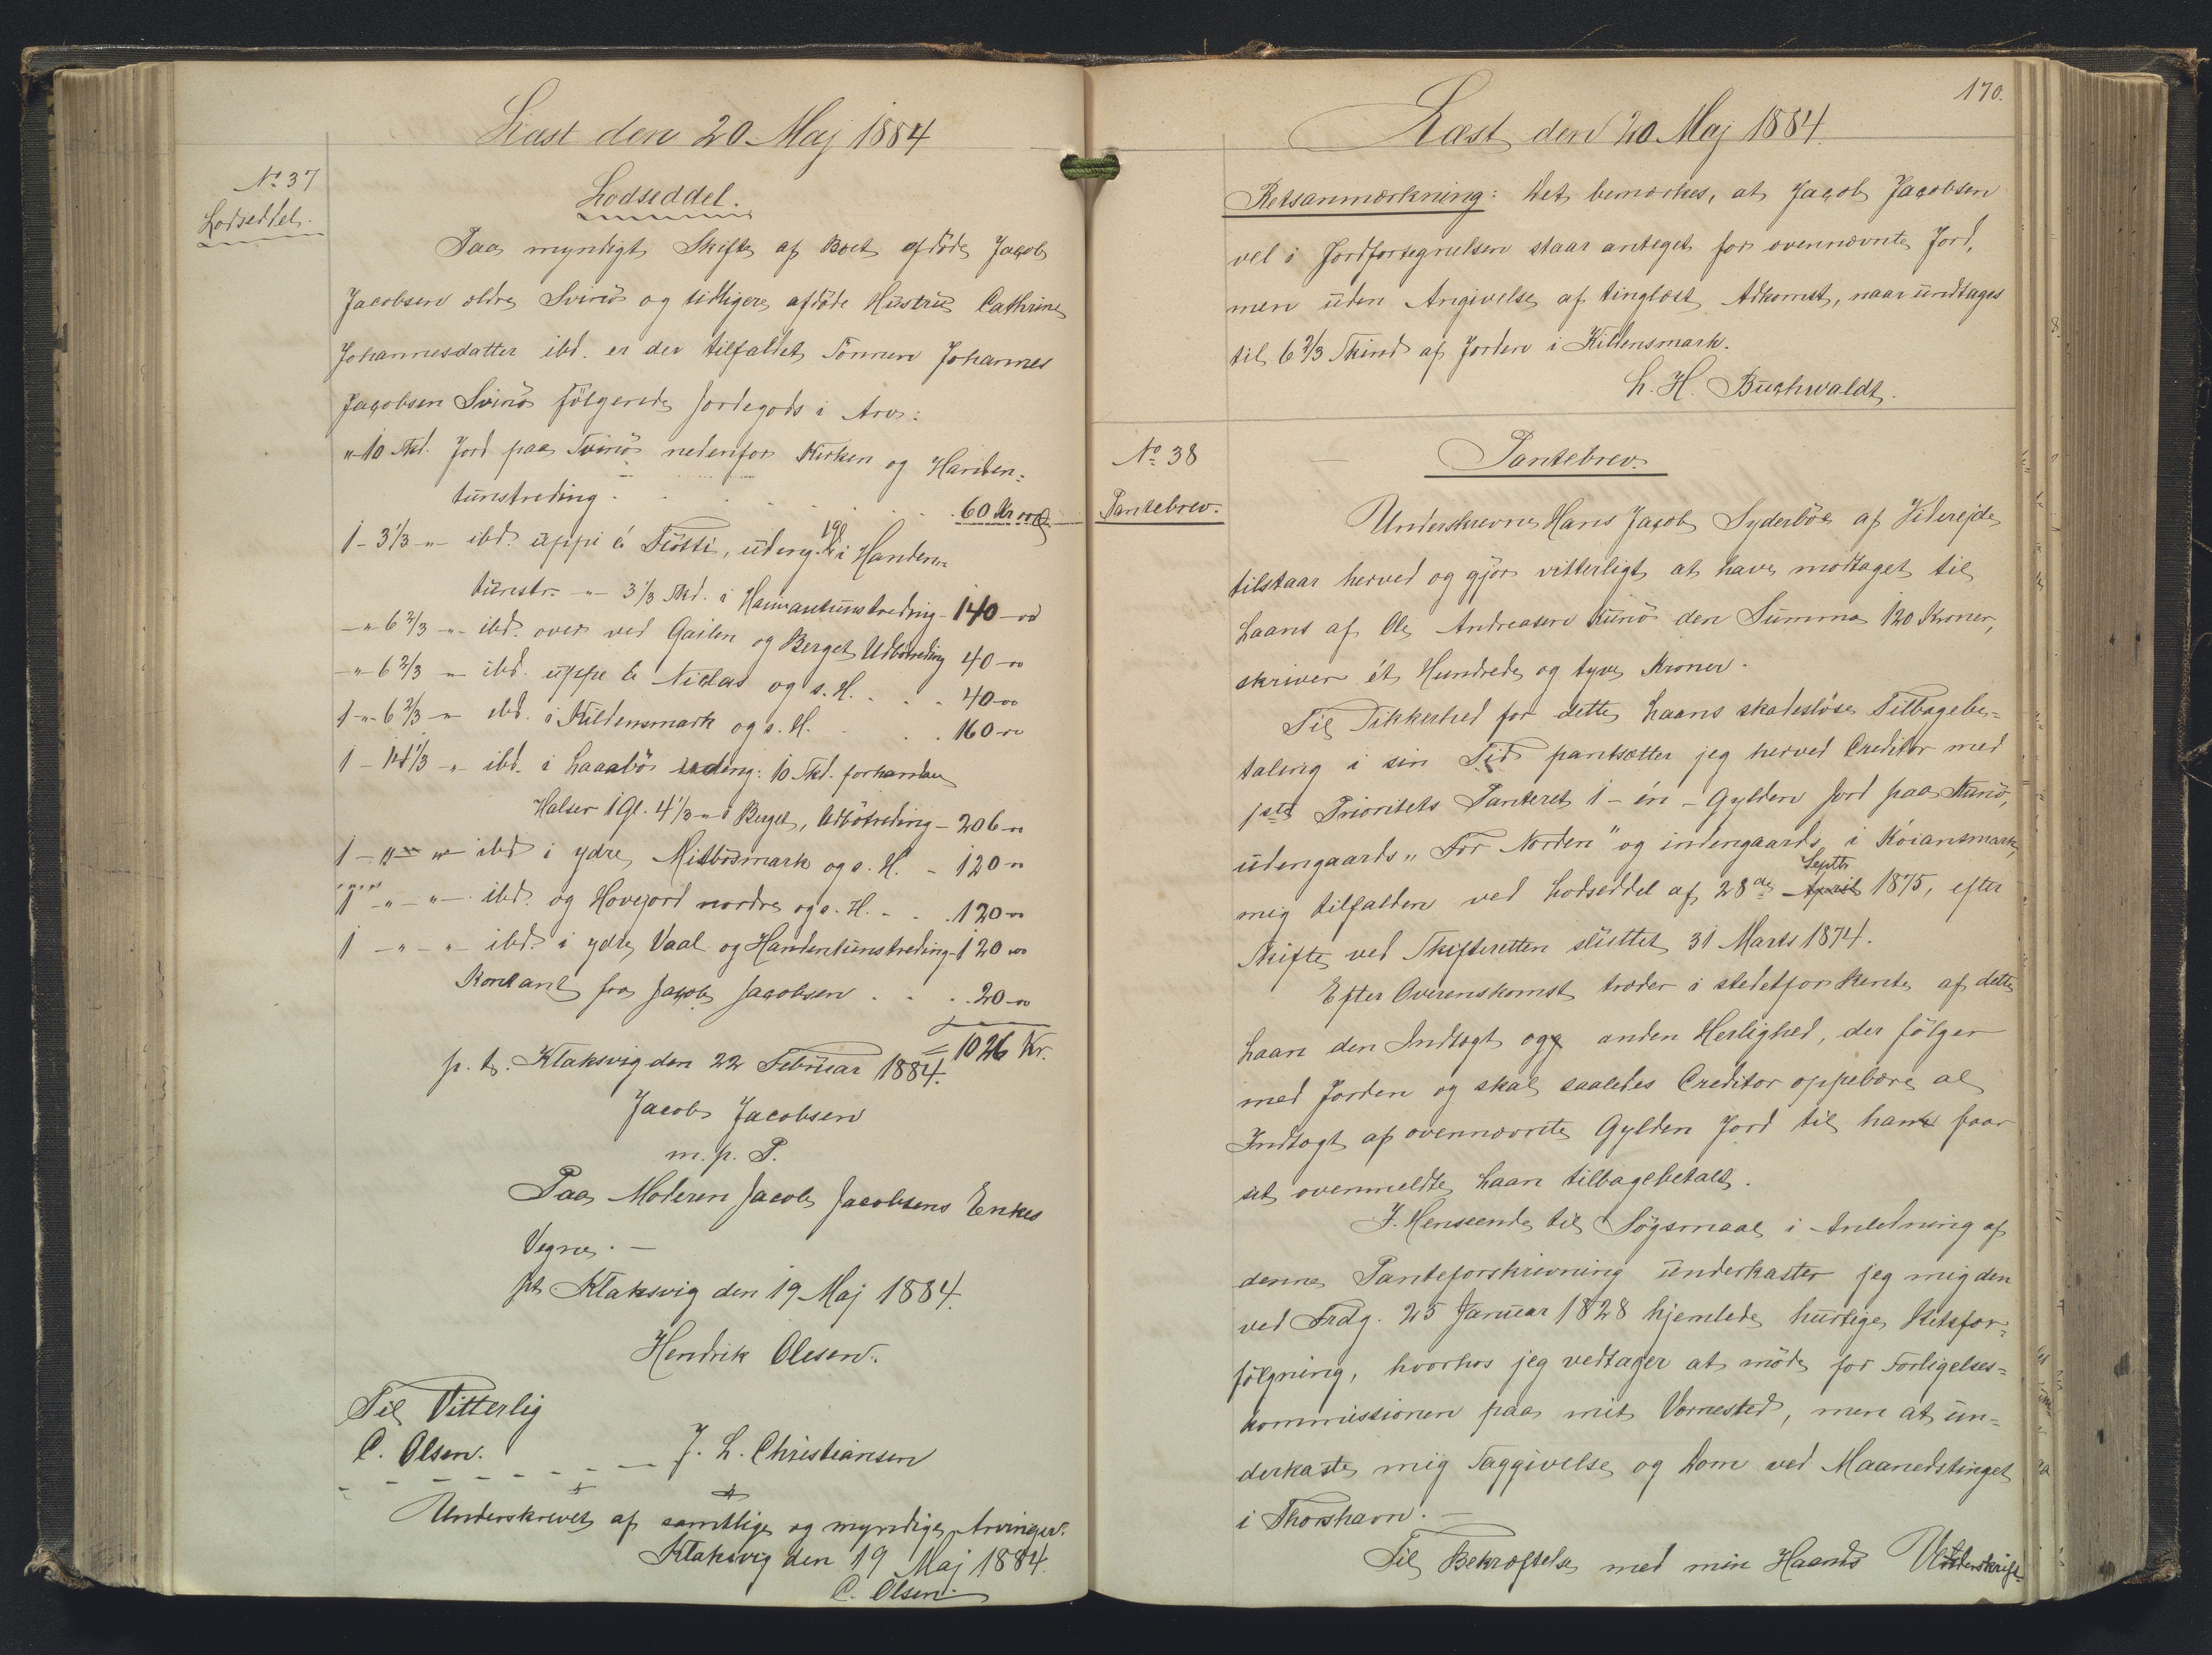 Læst den 20 Maj 1884
No 37
Lodseddel.
Lodseddel.
Paa myndigt Skifte af Boet afdøde Jacob
Jacobsen ældre Svinö og tidligere afdöde Hustru Cathrine
Johannesdatter ibd. er der tilfaldet Sönnen Johannes
Jacobsen Svinö fölgende Jordegods i Arv:
"-10 Skd. Jord paa Svinö nedenfor Kirken og Handen=
tunstreding . . . . . . 60 Kr
1 - 3 1/3 -"- ibd. uppi á Fiötti, udeng. i Handen=
tunstr. -"- 3 1/3 Skd. i Heimantunstreding - 140 - "
-"- 6 2/3 -"- ibd. over ved Gailen og Berget Udbötreding 40 - "
-"- 6 2/3 -"- ibd. uppe á Niclas og s. H. . . 40 - "
1 -"- 6 2/3 -"- ibd. i Kildensmark og s. H. . . 160 - "
1 - 14 1/3 -"- ibd. i Laaabö udeng: 10 Skd. forhanden
Halser 1 Gl. 4 1/3 -"- i Berget, Udbötreding - 206 - "
1 -"- "- ibd i ydre Midbösmark og s. H. - 120 - "
1 -"- "- ibd. og Hovejord nordre og s. H. - . 120 - "
1 -"- "- ibd. i ydre Vaal og Handentunstreding - 120 - "
Kontant fra Jacob Jacobsen . . . 20 - "
= 1026 Kr.
p. t. Klaksvig den 22 Februar 1884.
Jacob Jacobsen
m. p. P.
Paa Moderen Jacob Jacobsens Enkes
Vegne. -
pt Klaksvig den 19 Maj 1884.
Hendrik Olesen.
Til Vitterlig
C. Olsen. J. L. Christiansen
Underskrevet af samtlige og myndige Arvinger.
Klaksvig den 19 Maj 1884.
C. Olsen.
170.
Læst den 20 Maj 1884.
Retsanmærkning: Det bemærkes, at Jacob Jacobsen
vel i Jordfortegnelsen staar anteget for ovennævnte Jord,
men uden Angivelse af tinglæst Adkomst, naar undtages
til 6 2/3 Skind af Jorden i Kildensmark.
L. H. Buchwaldt.
No 38
Pantebrev.
Pantebrev.
Underskrevne Hans Jacob Syderböe af Viderejde
tilstaar herved og gjör vitterligt at have modtaget til
Laans af Ole Andreasen Kunö den Summa 120 Kroner,
skriver ét Hundrede og tyve Kroner.
Til Sikkerhed for dette Laans skadeslöse Tilbagebe=
taling i sin Tid pantsætter jeg herved Creditor med
1ste Prioritets Panteret 1 - én - Gylden Jord paa Kunö,
udengaards "For Norden" og indengaards i Kóiansmark,
mig tilfalden ved Lodseddel af 28de April Septbr 1875, efter
Skifte ved Skifteretten sluttet 31 Marts 1874.
Efter Overenskomst træder i stedetfor Rente af dette
Laan den Indtægt og anden Herlighed, der fölger
med Jorden og skal saaledes Creditor oppebære al
Indtægt af ovennævnte Gylden Jord til han faar
sit ovenmeldte Laan tilbagebetalt.
I. Henseende til Sögsmaal i Anledning af
denne Panteforskrivning underkaster jeg mig den
ved Frdg. 25 Januar 1828 hjemlede hurtige Retsfor=
fölgning, hvorhos jeg vedtager at möde for Forligelses=
kommissionen paa mit Værnested, men at un=
derkaste mig Saggivelse og Dom ved Maanedstinget
i Thorshavn. -
Til Bekræftelse med min Haands Underskrift